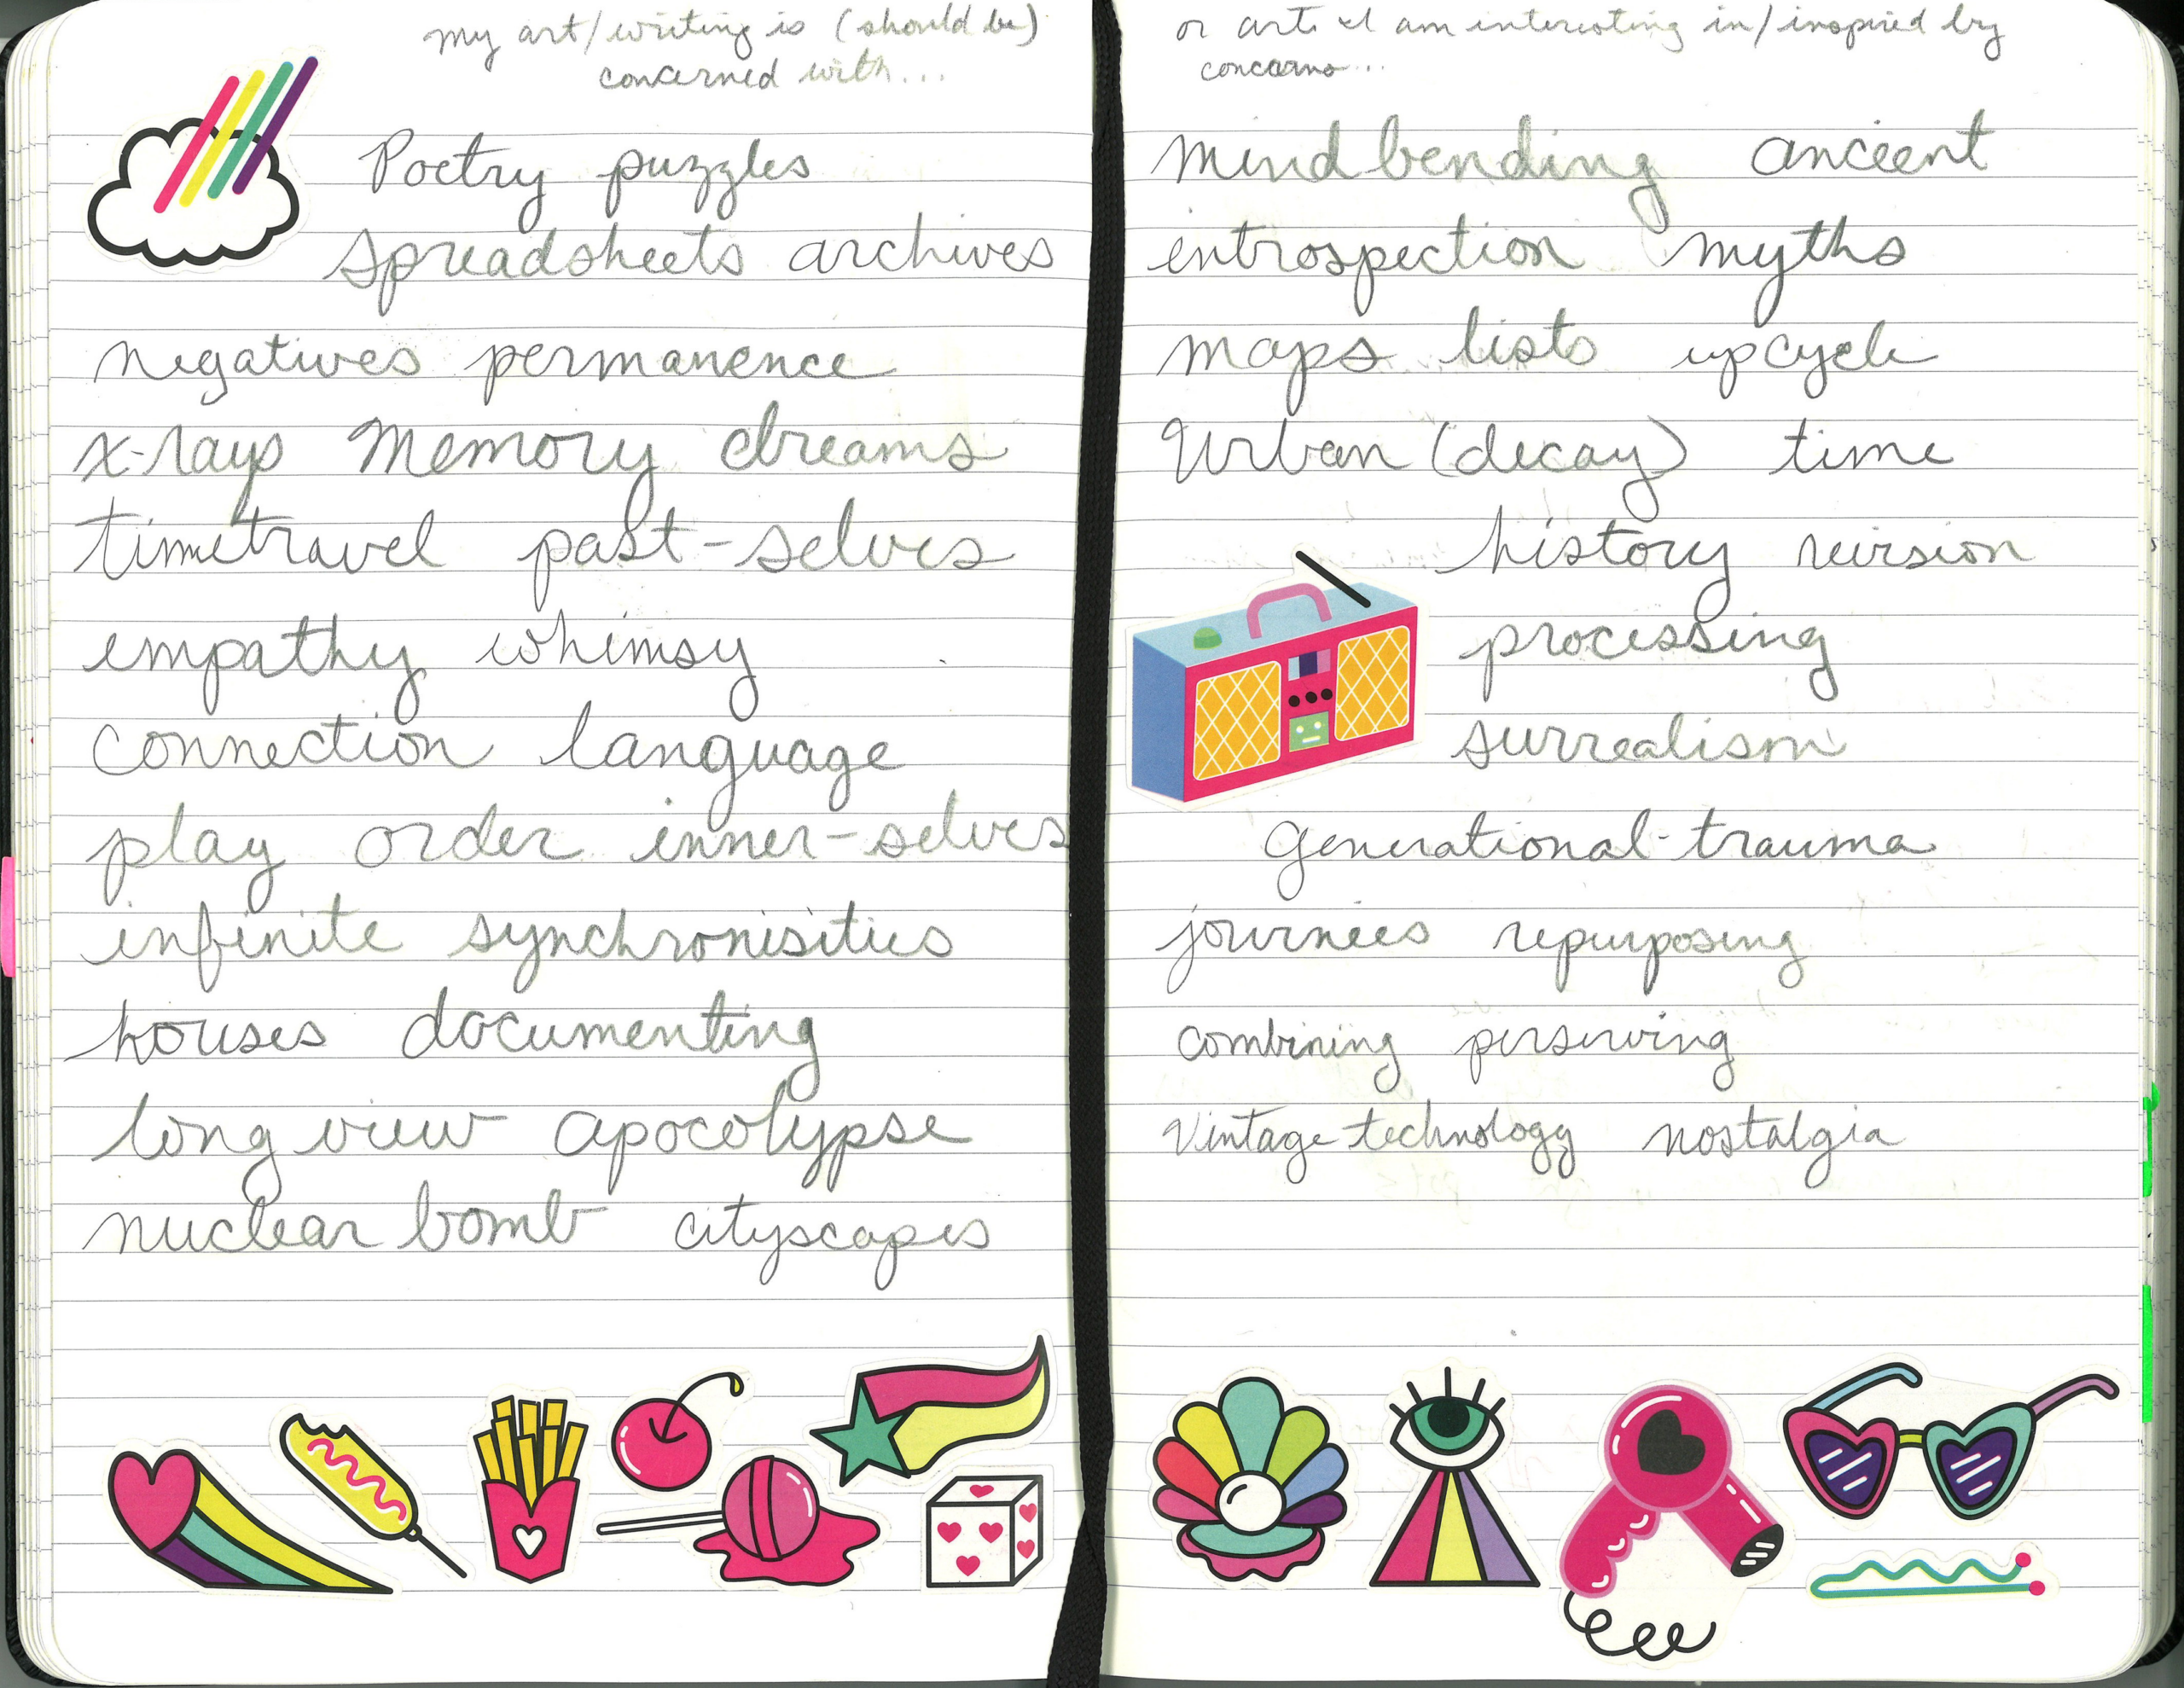 my art/writing is (should be)
concerned with...
Poetry puzzles
spreadsheets archives
negatives permanence
x-rays memory dreams
timetravel past-selves
empathy whimsy
connection language
play order inner-selves
infinite synchronisities
houses documenting
long view apocolypse
nuclear bomb cityscapes
or arts I am interesting in/inspired by
concerns...
mind bending ancient
introspection myths
maps lists upcycle
Urban (decay) time
history revision
processing
surrealism
generational-trauma
journies repurposing
combining perserving
Vintage technology nostalgia